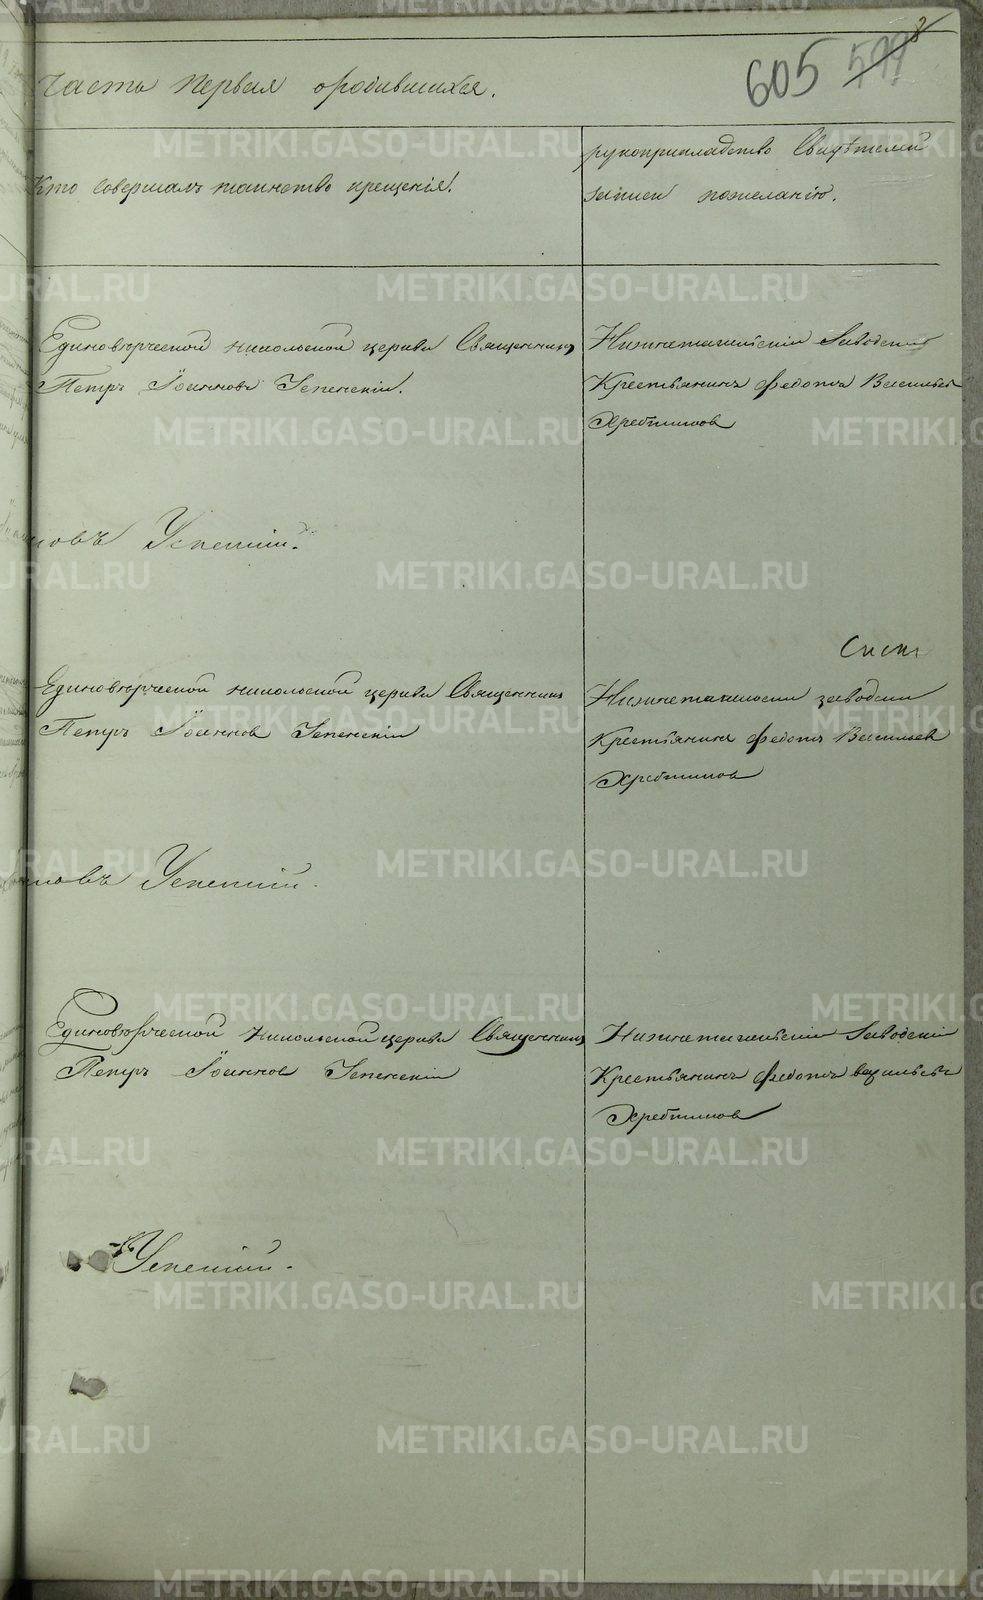 8
605 599
Часть первая оробившихся.
Кто совершалъ таинство крещенія.
рукоприкладство свидѣтелей
записи пожеланію.
Единоверческой никольской церкви Священникъ
Петръ Іоанновъ Успенскій.
Нижнетагильскій Заводскій
Крестьянинъ Федотъ Васильевъ
Хребтиковъ
новъ Успенскій.
Спск
Единоверческой никольской церкви Священникъ
Петръ Іоанновъ Успенскій
Нижнетагильскій заводскій
Крестьянинъ Федотъ Васильев
Хребтиковъ
новъ Успенскій.
Единоверческой Никольской церкви Священникъ
Петръ Іоаннов Успенскій
Нижнетагильскій Заводскій
Крестьянинъ Федотъ василевъ
Хребтиковъ
Успенскій.
METRIKI.GASO-URAL.RU